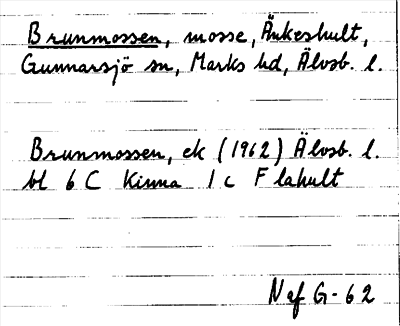 Brunmossen, mosse, Änkeshult,
Gunnarsjö sn, Marks hd, Älvsb. l.
Brunmossen, ek (1962) Älvsb. l.
bl 6 C Kinna 1 c Flahult
Naf G-62